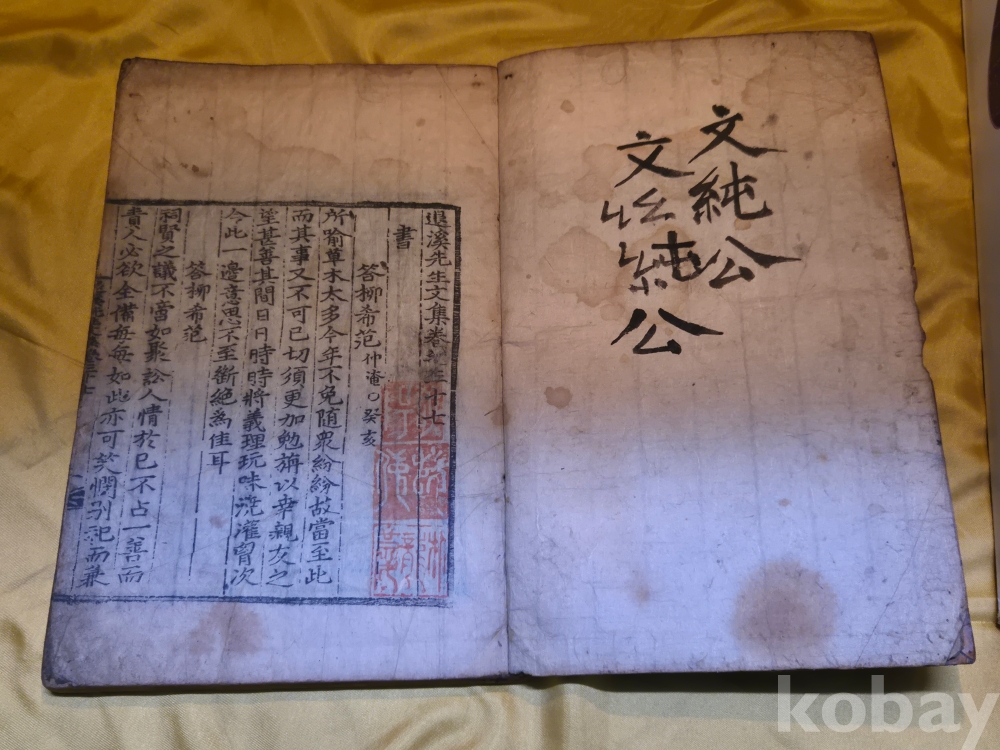 文純公
文純公
退溪先生文集卷之三十七
書
答柳希范仲淹○癸亥
所喻草木太多今年不免隨衆紛紛故當至此
而其事又不可已切須更加勉旃以幸親友之
望甚善其間日月時時將義理玩味澆灌胷次
今此一邊意思不至斷絶爲佳耳
答柳希范
祠賢之議不啻如聚訟人情於已不占一善而
責人必欲全備每每如此亦可笑憫別紙而兼
kobay